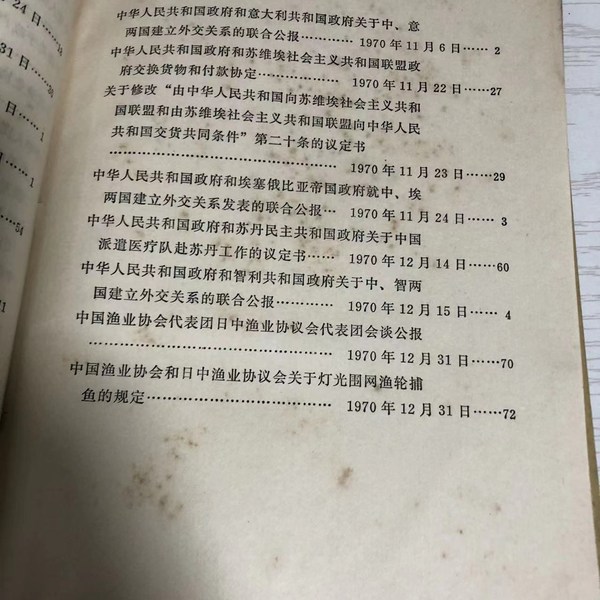 24日……13
31日……35
日……1
日……1
……54
……41
中华人民共和国政府和意大利共和国政府关于中、意
两国建立外交关系的联合公报………… 1970年11月6日…… 2
中华人民共和国政府和苏维埃社会主义共和国联盟政
府交换货物和付款协定………… 1970年11月22日……27
关于修改“由中华人民共和国向苏维埃社会主义共和
国联盟和由苏维埃社会主义共和国联盟向中华人民
共和国交货共同条件”第二十条的议定书
………………………………… 1970年11月23日……29
中华人民共和国政府和埃塞俄比亚帝国政府就中、埃
两国建立外交关系发表的联合公报… 1970年11月24日…… 3
中华人民共和国政府和苏丹民主共和国政府关于中国
派遣医疗队赴苏丹工作的议定书…… 1970年12月14日……60
中华人民共和国政府和智利共和国政府关于中、智两
国建立外交关系的联合公报………… 1970年12月15日…… 4
中国渔业协会代表团日中渔业协议会代表团会谈公报
………………………………… 1970年12月31日……70
中国渔业协会和日中渔业协议会关于灯光围网渔轮捕
鱼的规定………………………… 1970年12月31日……72